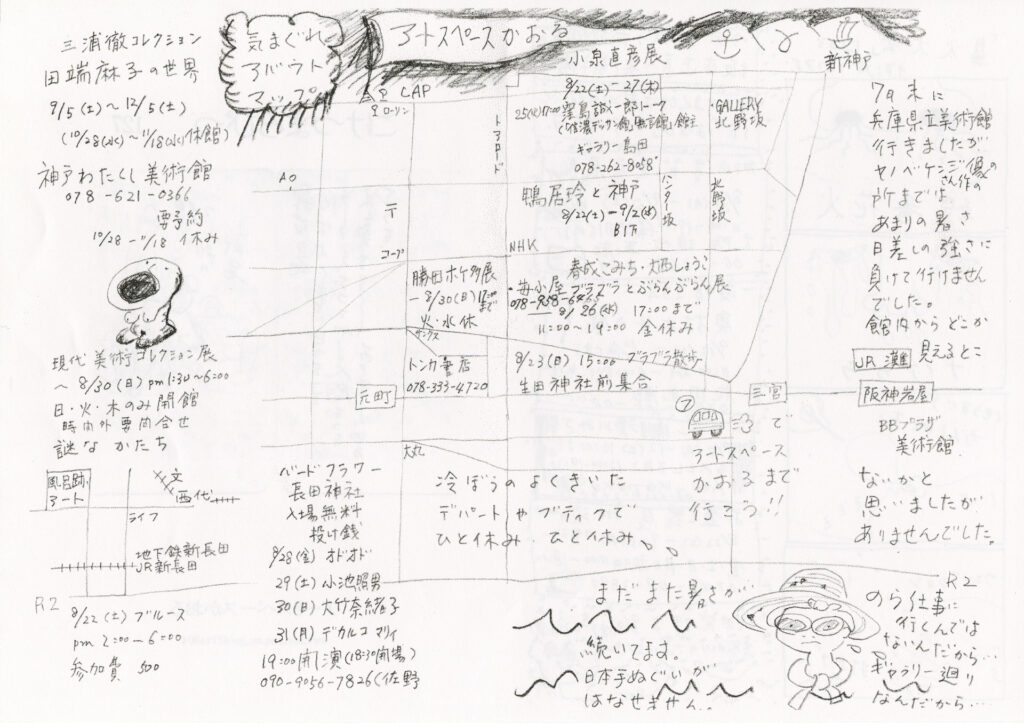 三浦徹コレクション
田端麻子の世界
9/5(土)〜12/5(土)
(10/28(水)〜11/18(水)休館)
神戸わたくし美術館
078-621-0366
要予約
10/28-11/18 休み
現代美術コレクション展
〜8/30(日)pm1:30〜6:00
日・火・木のみ開館
時内外要問合せ
謎なかたち
風呂跡
アート
文
西代
ライフ
地下鉄新長田
JR新長田
R2
8/22(土)ブルース
pm 2:00〜6:00
参加費 500
気まぐれ
アバウト
マップ
アートスペースかおる
CAP
ローソン
AO
〒
コープ
トアロード
小泉直彦展
8/22(土)-27(木)
25(火)17:00窪島誠一郎トーク
(「信濃デッサン館」「無言館」館主
ギャラリー島田
078-262-8058
鴨居玲と神戸
8/22(土)-9/2(水)
B1F
ハンター坂
・GALLERY
北野坂
北野坂
新神戸
NHK
勝田ホケ多展
-8/30(日)17:00まで
火・水休
トンカ書店
078-333-4720
春成こみち・大西しょうこ
・毎小屋 ブラブラとぶらんぶらん展
078-958-6465
8/26(水) 17:00まで
11:00〜19:00 金休み
8/23(日)15:00 ブラブラ散歩
生田神社前集合
元町
三宮
大丸
バードフラワー
長田神社
入場無料
投げ銭
8/28(金)オドオド
29(土)小池照男
30(日)大竹奈緒子
31(月)デカルコ マリィ
19:00開演(18:30開場)
090-9056-7826(佐野
冷ぼうのよくきいた
デパートやブティックで
ひと休み.ひと休み。
⑦
で
アートスペース
かおるまで
行こう!!
7月末に
兵庫県立美術館
行きましたが
ヤノベケンジさん作の
所までは
あまりの暑さ
日差しの強さに
負けて行けません
でした。
館内からどこか
見えるとこ
JR 灘
阪神岩屋
BBプラザ
美術館
ないかと
思いましたが
ありませんでした。
まだまだ暑さが
続いてます。
日本手ぬぐいが
はなせません。
R2
のら仕事に
行くんでは
ないんだから…
ギャラリー廻り
なんだから…